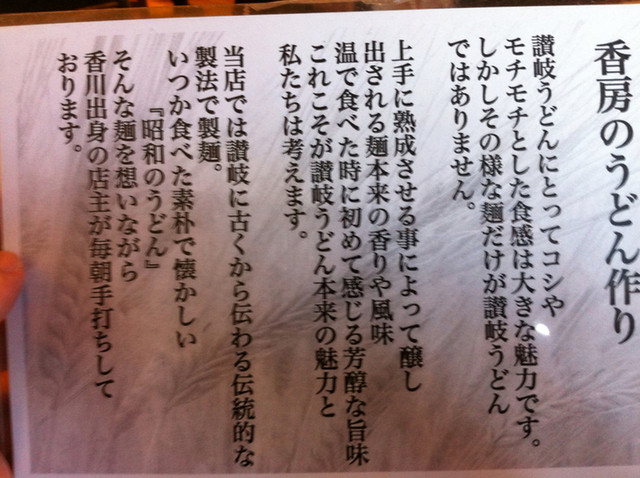 香房のうどん作り
讃岐うどんにとってコシや
モチモチとした食感は大きな魅力です。
しかしその様な麺だけが讃岐うどん
ではありません。
上手に熟成させる事によって醸し
出される麺本来の香りや風味
温で食べた時に初めて感じる芳醇な旨味
これこそが讃岐うどん本来の魅力と
私たちは考えます。
当店では讃岐に古くから伝わる伝統的な
製法で製麺。
いつか食べた素朴で懐かしい
『昭和のうどん』
そんな麺を想いながら
香川出身の店主が毎朝手打ちして
おります。